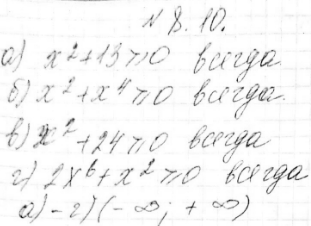 № 8.10.
а) x² + 13 ≥ 0 всегда
б) x² + x⁴ ≥ 0 всегда.
в) x² + 24 ≥ 0 всегда
г) 2x⁶ + x² ≥ 0 всегда
а) - г) (-∞; +∞)